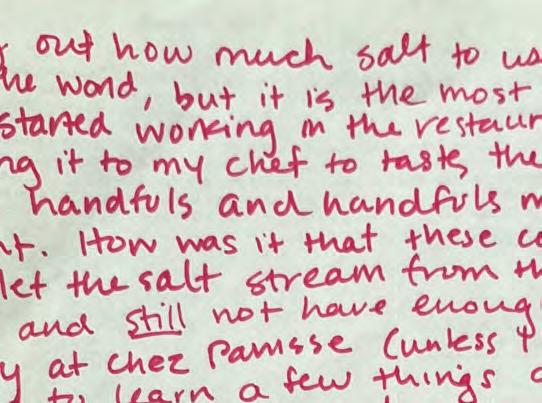 out how much salt to us
he word, but it is the most
started working in the restaur
ng it to my chef to taste, the
handfuls and handfuls m
nt. How was it that these co
let the salt stream from th
and still not have enoug
y at chez panisse (unless I
to learn a few things